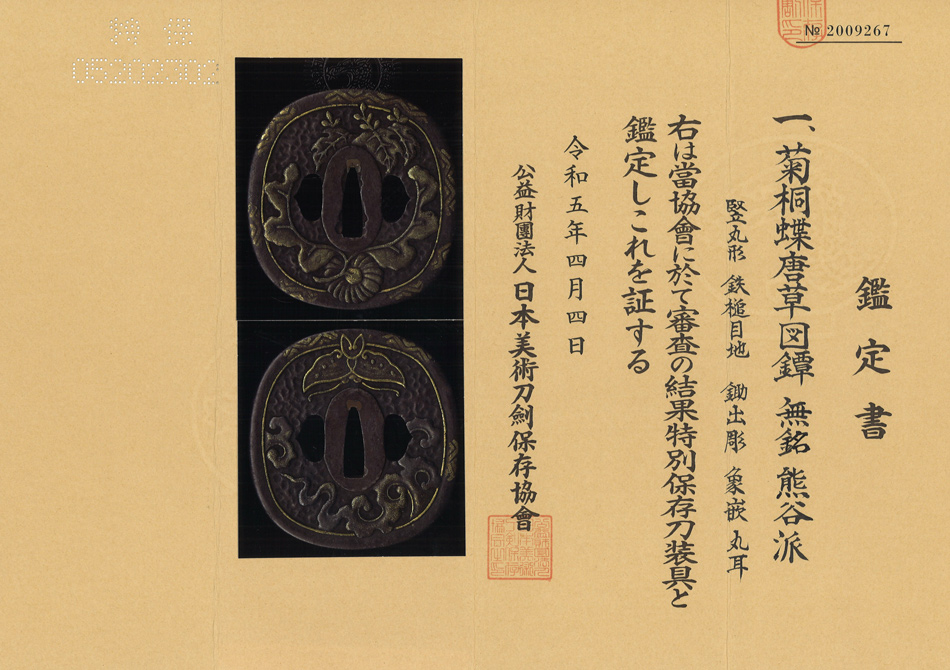 № 2009267
鑑定書
一、菊桐蝶唐草図鐔 無銘 熊谷派
竪丸形 鉄槌目地 鋤出彫 象嵌 丸耳
右は當協會に於て審査の結果特別保存刀装具と
鑑定しこれを証する
令和五年四月四日
公益財團法人 日本美術刀劍保存協會